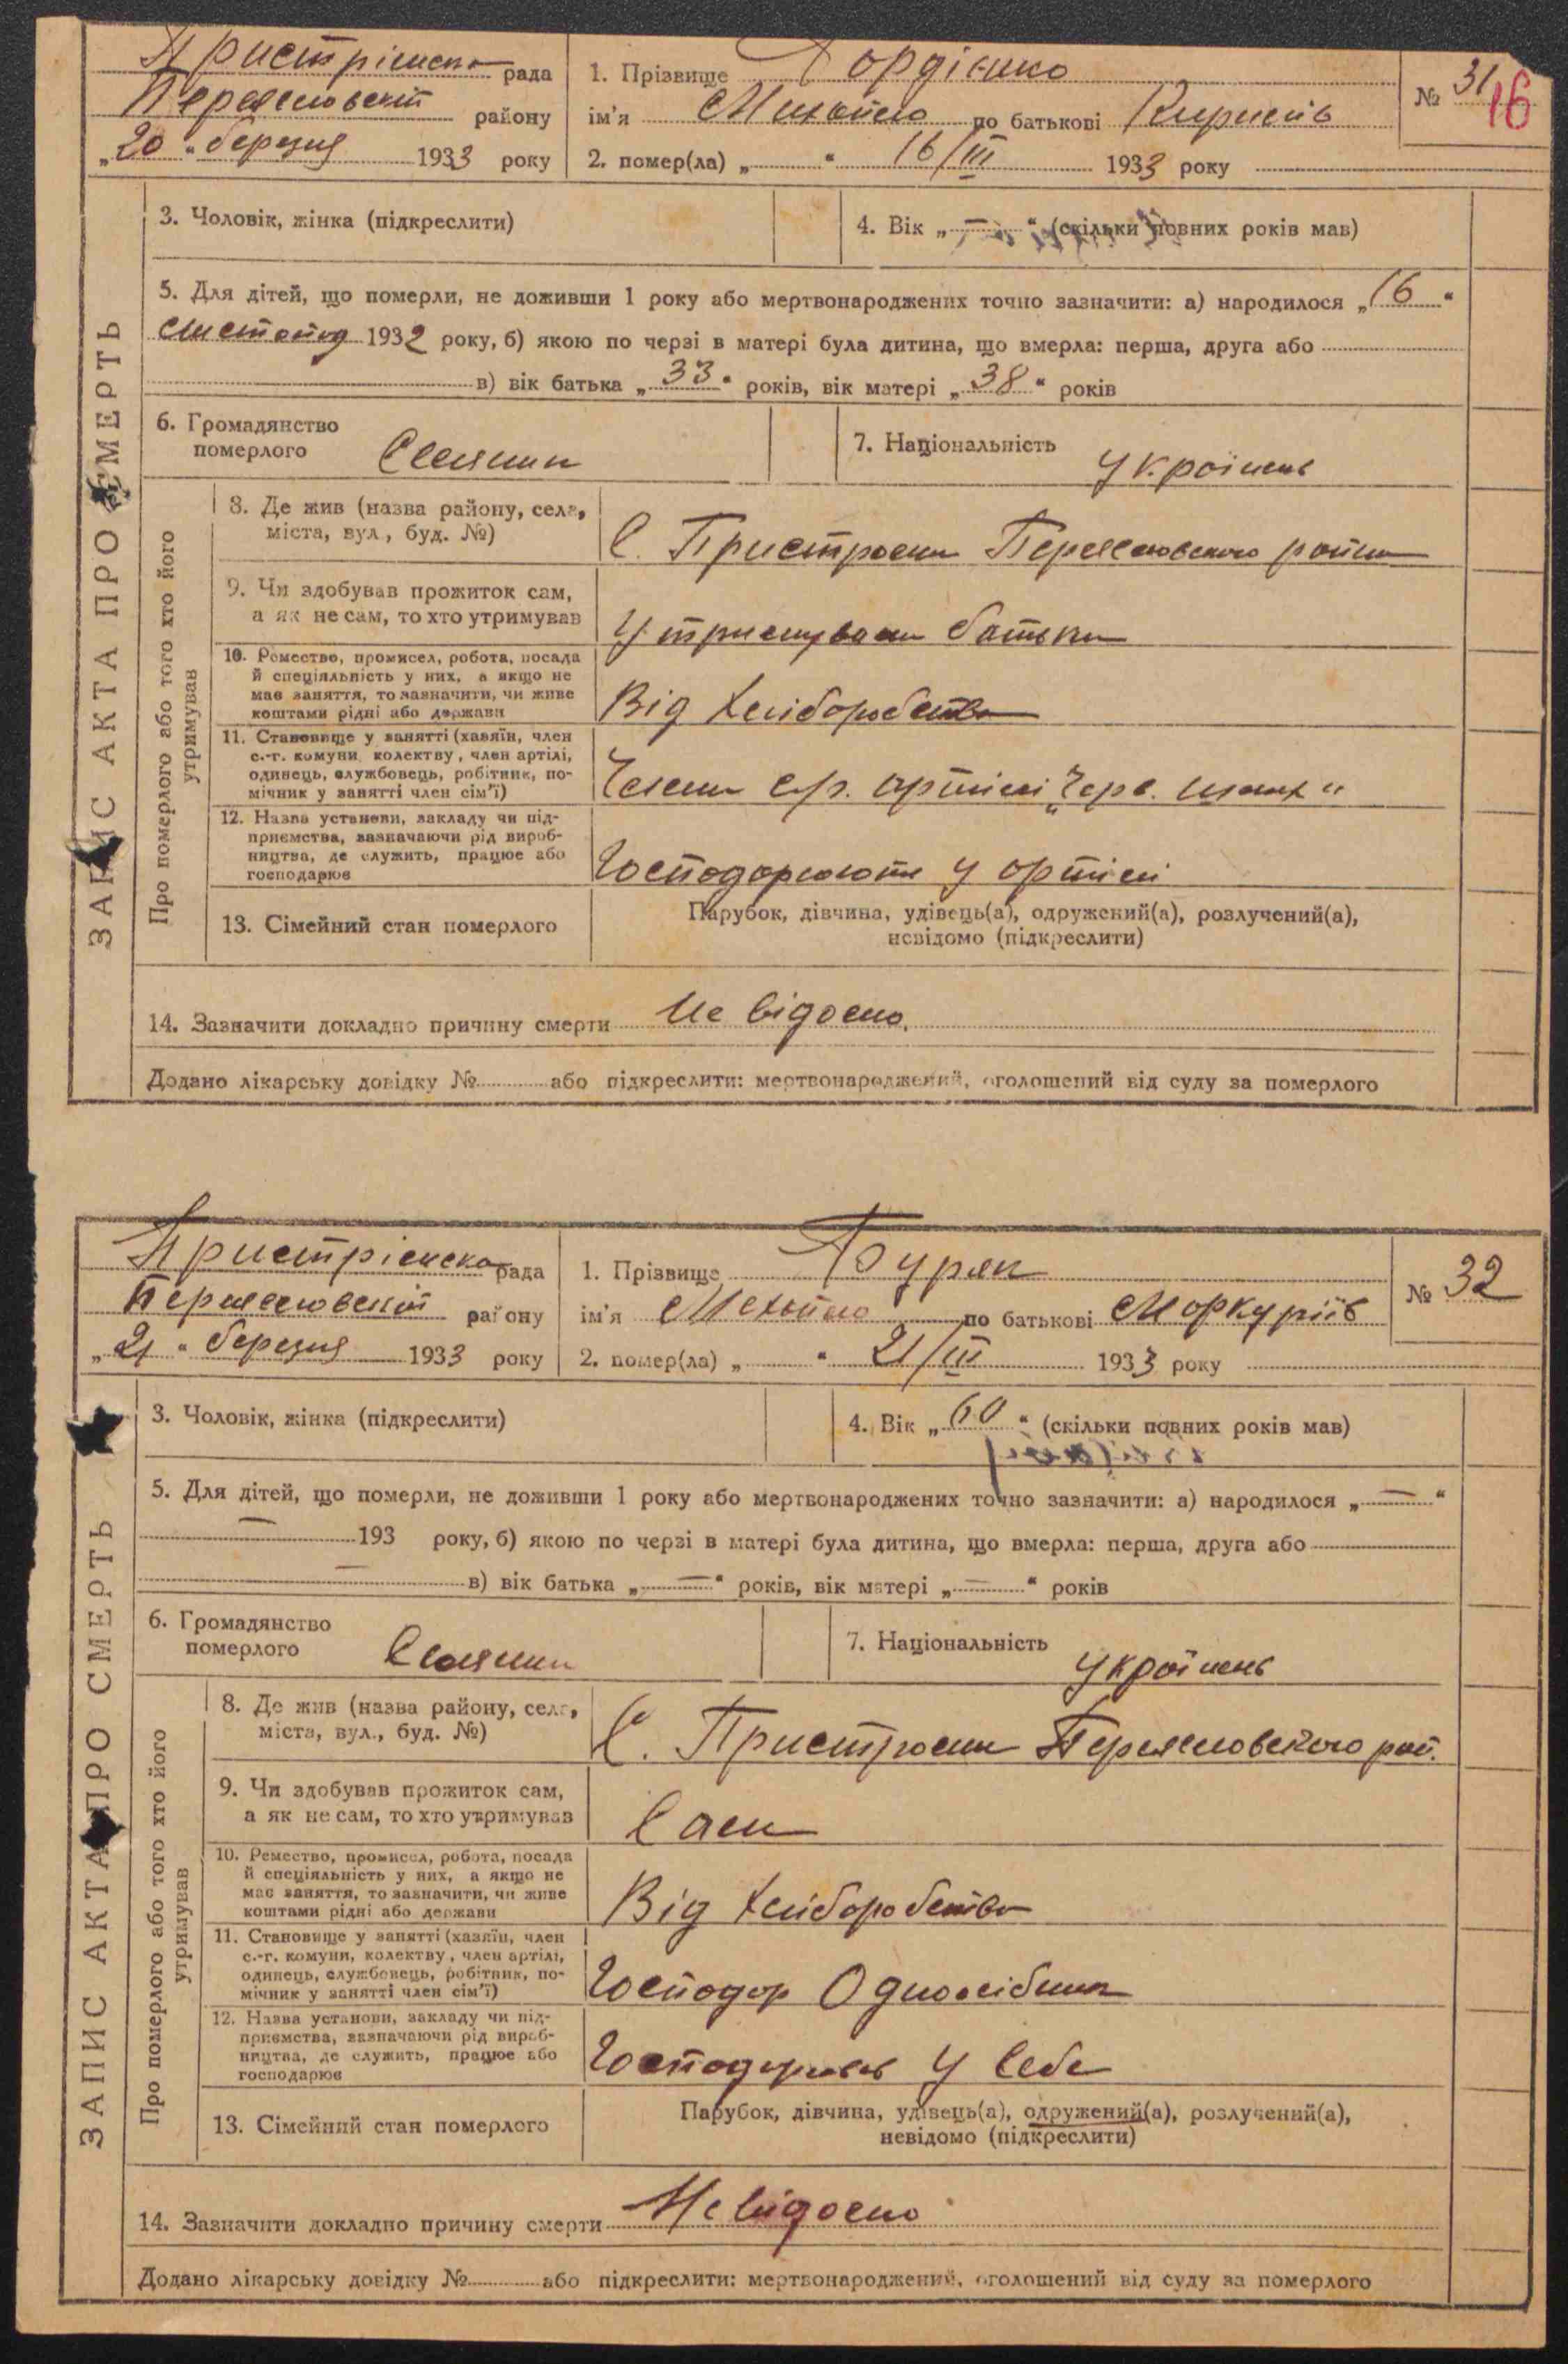 Пристрімска рада
Переяславський району
„20“ березня 1933 року
1. Прізвище Гордієнко
ім'я Михайло по батькові Кирилів
2. помер(ла) „ “ 16/III 1933 року
№ 31
16
ЗАПИС АКТА ПРО СМЕРТЬ
3. Чоловік, жінка (підкреслити)
4. Вік „—“ (скільки повних років мав)
5. Для дітей, що померли, не доживши 1 року або мертвонароджених точно зазначити: а) народилося „16“
листопад 1932 року, б) якою по черзі в матері була дитина, що вмерла: перша, друга або
в) вік батька „33“ років, вік матері „38“ років
6. Громадянство
померлого Селянин
7. Національність українець
Про померлого або того хто його
утримував
8. Де жив (назва району, села,
міста, вул., буд. №)
С. Пристроми Переясловського району
9. Чи здобував прожиток сам,
а як не сам, то хто утримував
Утримували батьки
10. Ремество, промисел, робота, посада
й спеціяльність у них, а якщо не
має заняття, то зазначити, чи живе
коштами рідні або держави
Від хліборобства
11. Становище у занятті (хазяїн, член
с.-г. комуни, колективу, член артілі,
одинець, службовець, робітник, по-
мічник у занятті член сім'ї)
Члени с/г. артілі „Черв. шлях“
12. Назва установи, закладу чи під-
приємства, зазначаючи рід вироб-
ництва, де служить, працює або
господарює
Господарюють у артілі
13. Сімейний стан померлого
Парубок, дівчина, удівець(а), одружений(а), розлучений(а),
невідомо (підкреслити)
14. Зазначити докладно причину смерти Не відомо.
Додано лікарську довідку № або підкреслити: мертвонароджений, оголошений від суду за померлого
Пристрімска рада
Переясловський району
„21“ березня 1933 року
1. Прізвище Буряк
ім'я Михайло по батькові Моркуріїв
2. помер(ла) „ “ 21/III 1933 року
№ 32
ЗАПИС АКТА ПРО СМЕРТЬ
3. Чоловік, жінка (підкреслити)
4. Вік „60“ (скільки повних років мав)
5. Для дітей, що померли, не доживши 1 року або мертвонароджених точно зазначити: а) народилося „—“
— 193 року, б) якою по черзі в матері була дитина, що вмерла: перша, друга або
— в) вік батька „—“ років, вік матері „—“ років
6. Громадянство
померлого Селянин
7. Національність українець
Про померлого або того хто його
утримував
8. Де жив (назва району, села,
міста, вул., буд. №)
С. Пристроми Переясловського рай.
9. Чи здобував прожиток сам,
а як не сам, то хто утримував
Сам
10. Ремество, промисел, робота, посада
й спеціяльність у них, а якщо не
має заняття, то зазначити, чи живе
коштами рідні або держави
Від хліборобства
11. Становище у занятті (хазяїн, член
с.-г. комуни, колективу, член артілі,
одинець, службовець, робітник, по-
мічник у занятті член сім'ї)
Господар Одноосібник
12. Назва установи, закладу чи під-
приємства, зазначаючи рід вироб-
ництва, де служить, працює або
господарює
Господарював у себе
13. Сімейний стан померлого
Парубок, дівчина, удівець(а), одружений(а), розлучений(а),
невідомо (підкреслити)
14. Зазначити докладно причину смерти Не відомо
Додано лікарську довідку № або підкреслити: мертвонароджений, оголошений від суду за померлого